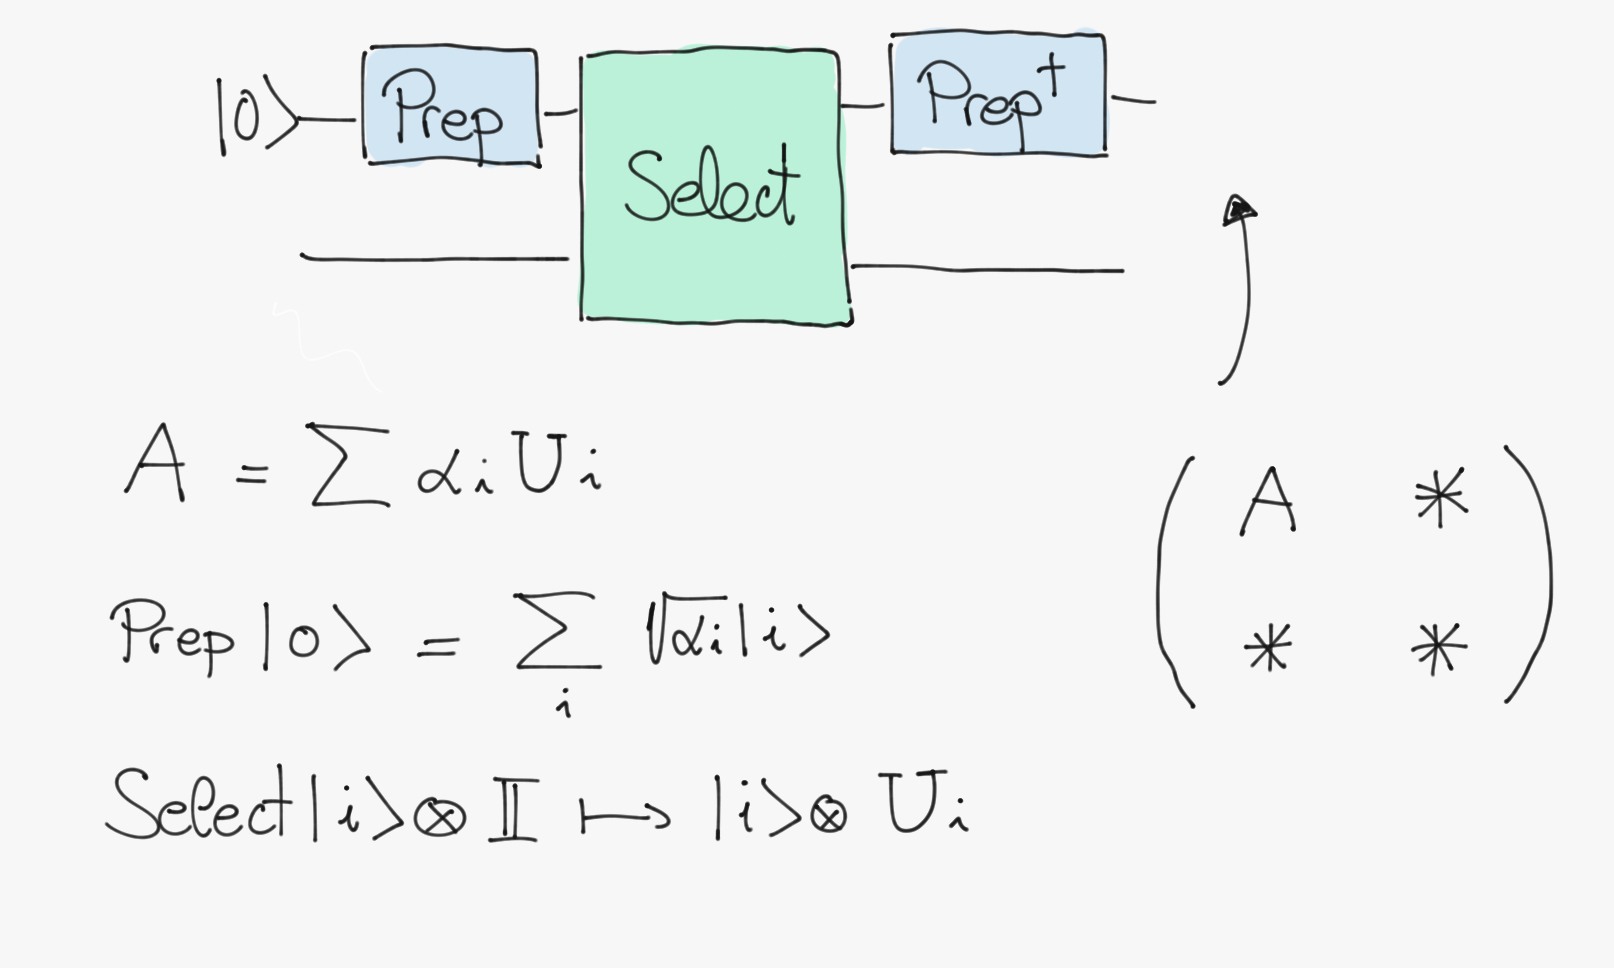 |0⟩ Prep Select Prep†
A = ∑ αᵢ Uᵢ
( A * * * )
Prep |0⟩ = ∑ᵢ √αᵢ |i⟩
Select |i⟩ ⊗ 𝕀 ↦ |i⟩ ⊗ Uᵢ